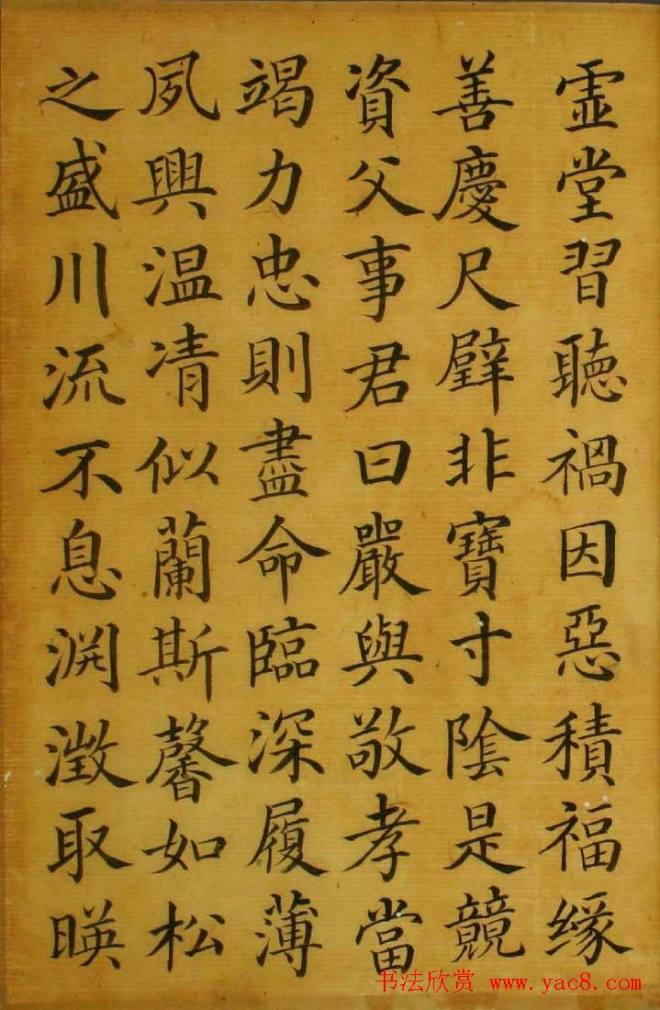 虚堂習聽禍因惡積福緣
善慶尺璧非寶寸陰是競
資父事君曰嚴與敬孝當
竭力忠則盡命臨深履薄
夙興温凊似蘭斯馨如松
之盛川流不息淵澂取暎
书法欣赏 www.yac8.com